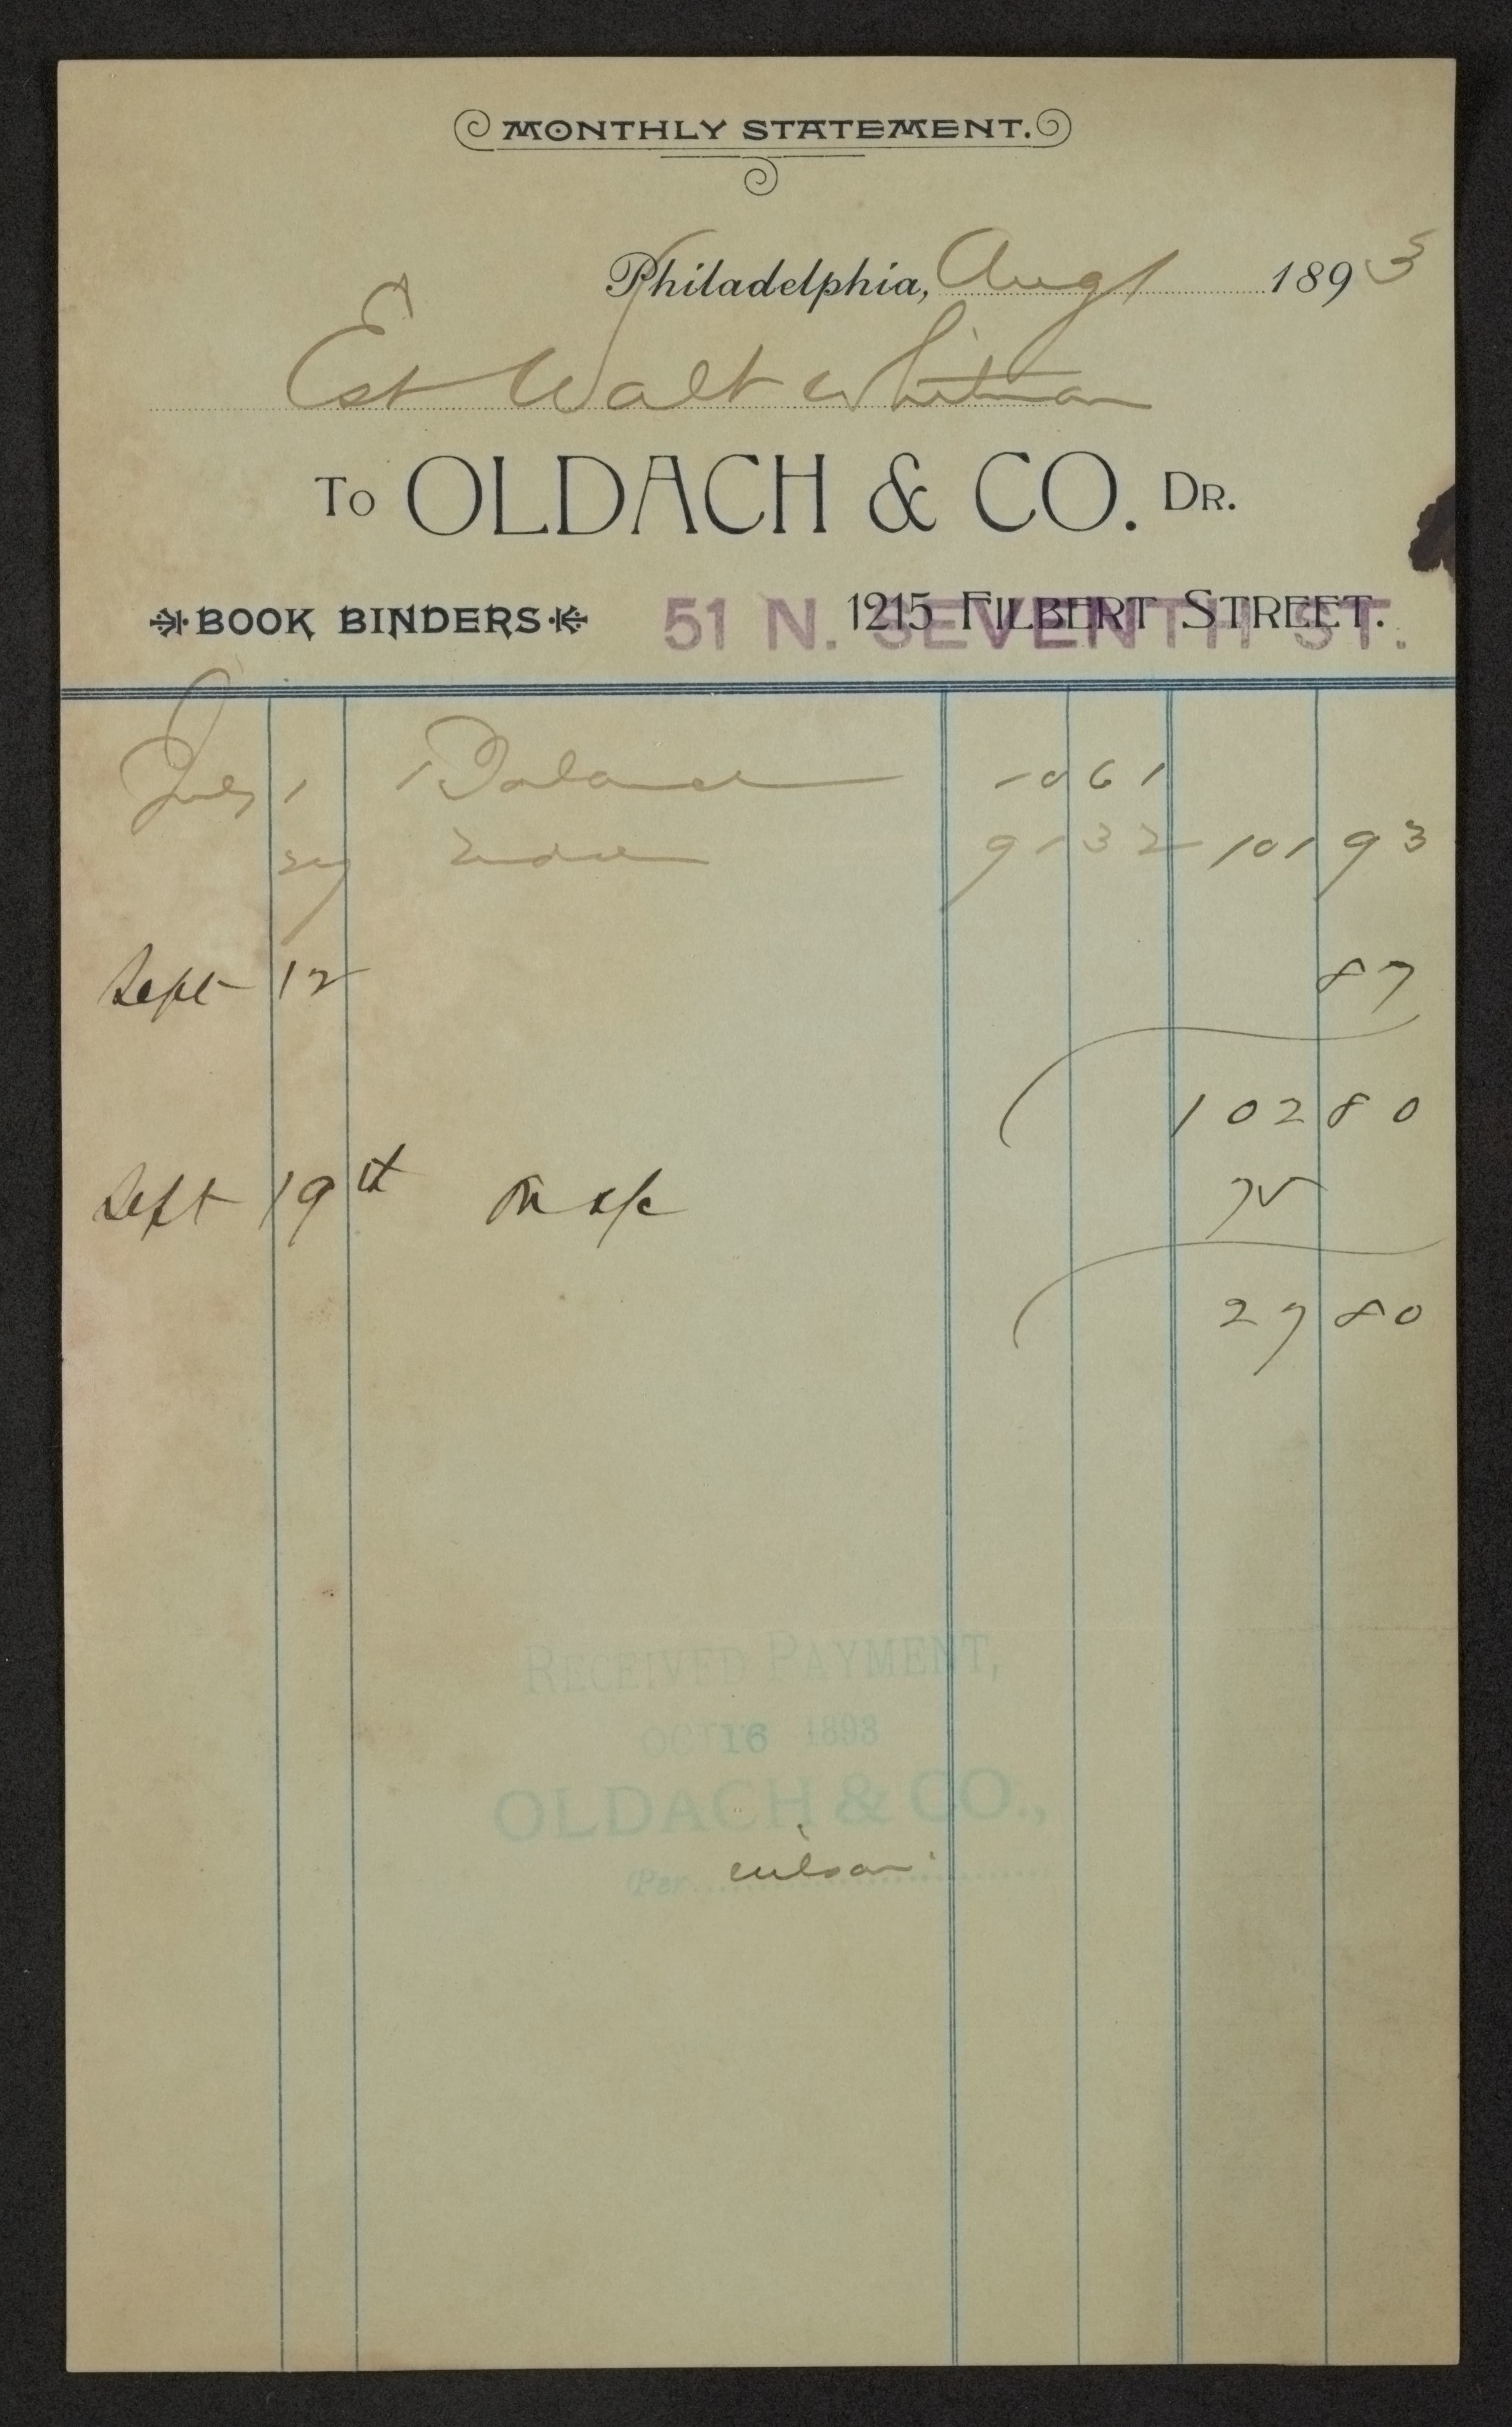 MONTHLY STATEMENT.
Philadelphia, Aug 1 1893
Est Walt Whitman
To OLDACH & CO. Dr.
BOOK BINDERS 1215 FILBERT STREET.
51 N. SEVENTH ST.
July 1 Balance 10 61
29 91 32 101 93
Sept 12 87
102 80
Sept 19th On a/c 75
27 80
RECEIVED PAYMENT,
OCT 16 1893
OLDACH & CO.,
Per wilson